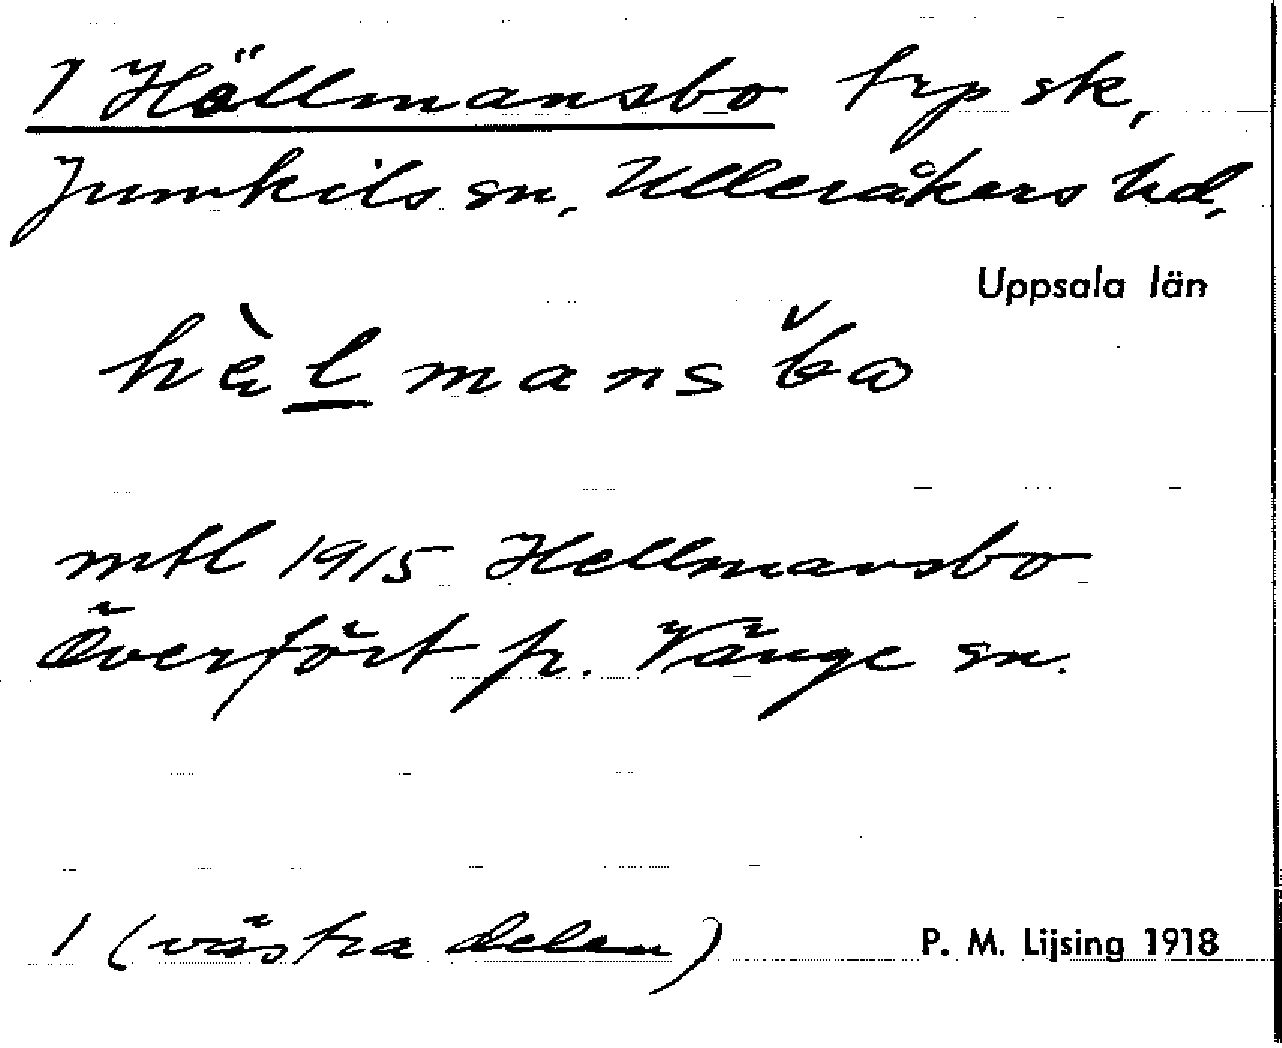 1 Hällmansbo trp sk,
Jumkils sn, Ulleråkers hd,
Uppsala län
hèlmansbo
mtl 1915 Hellmansbo
Överfört fr. Vänge sn.
1 (västra delen)
P. M. Lijsing 1918